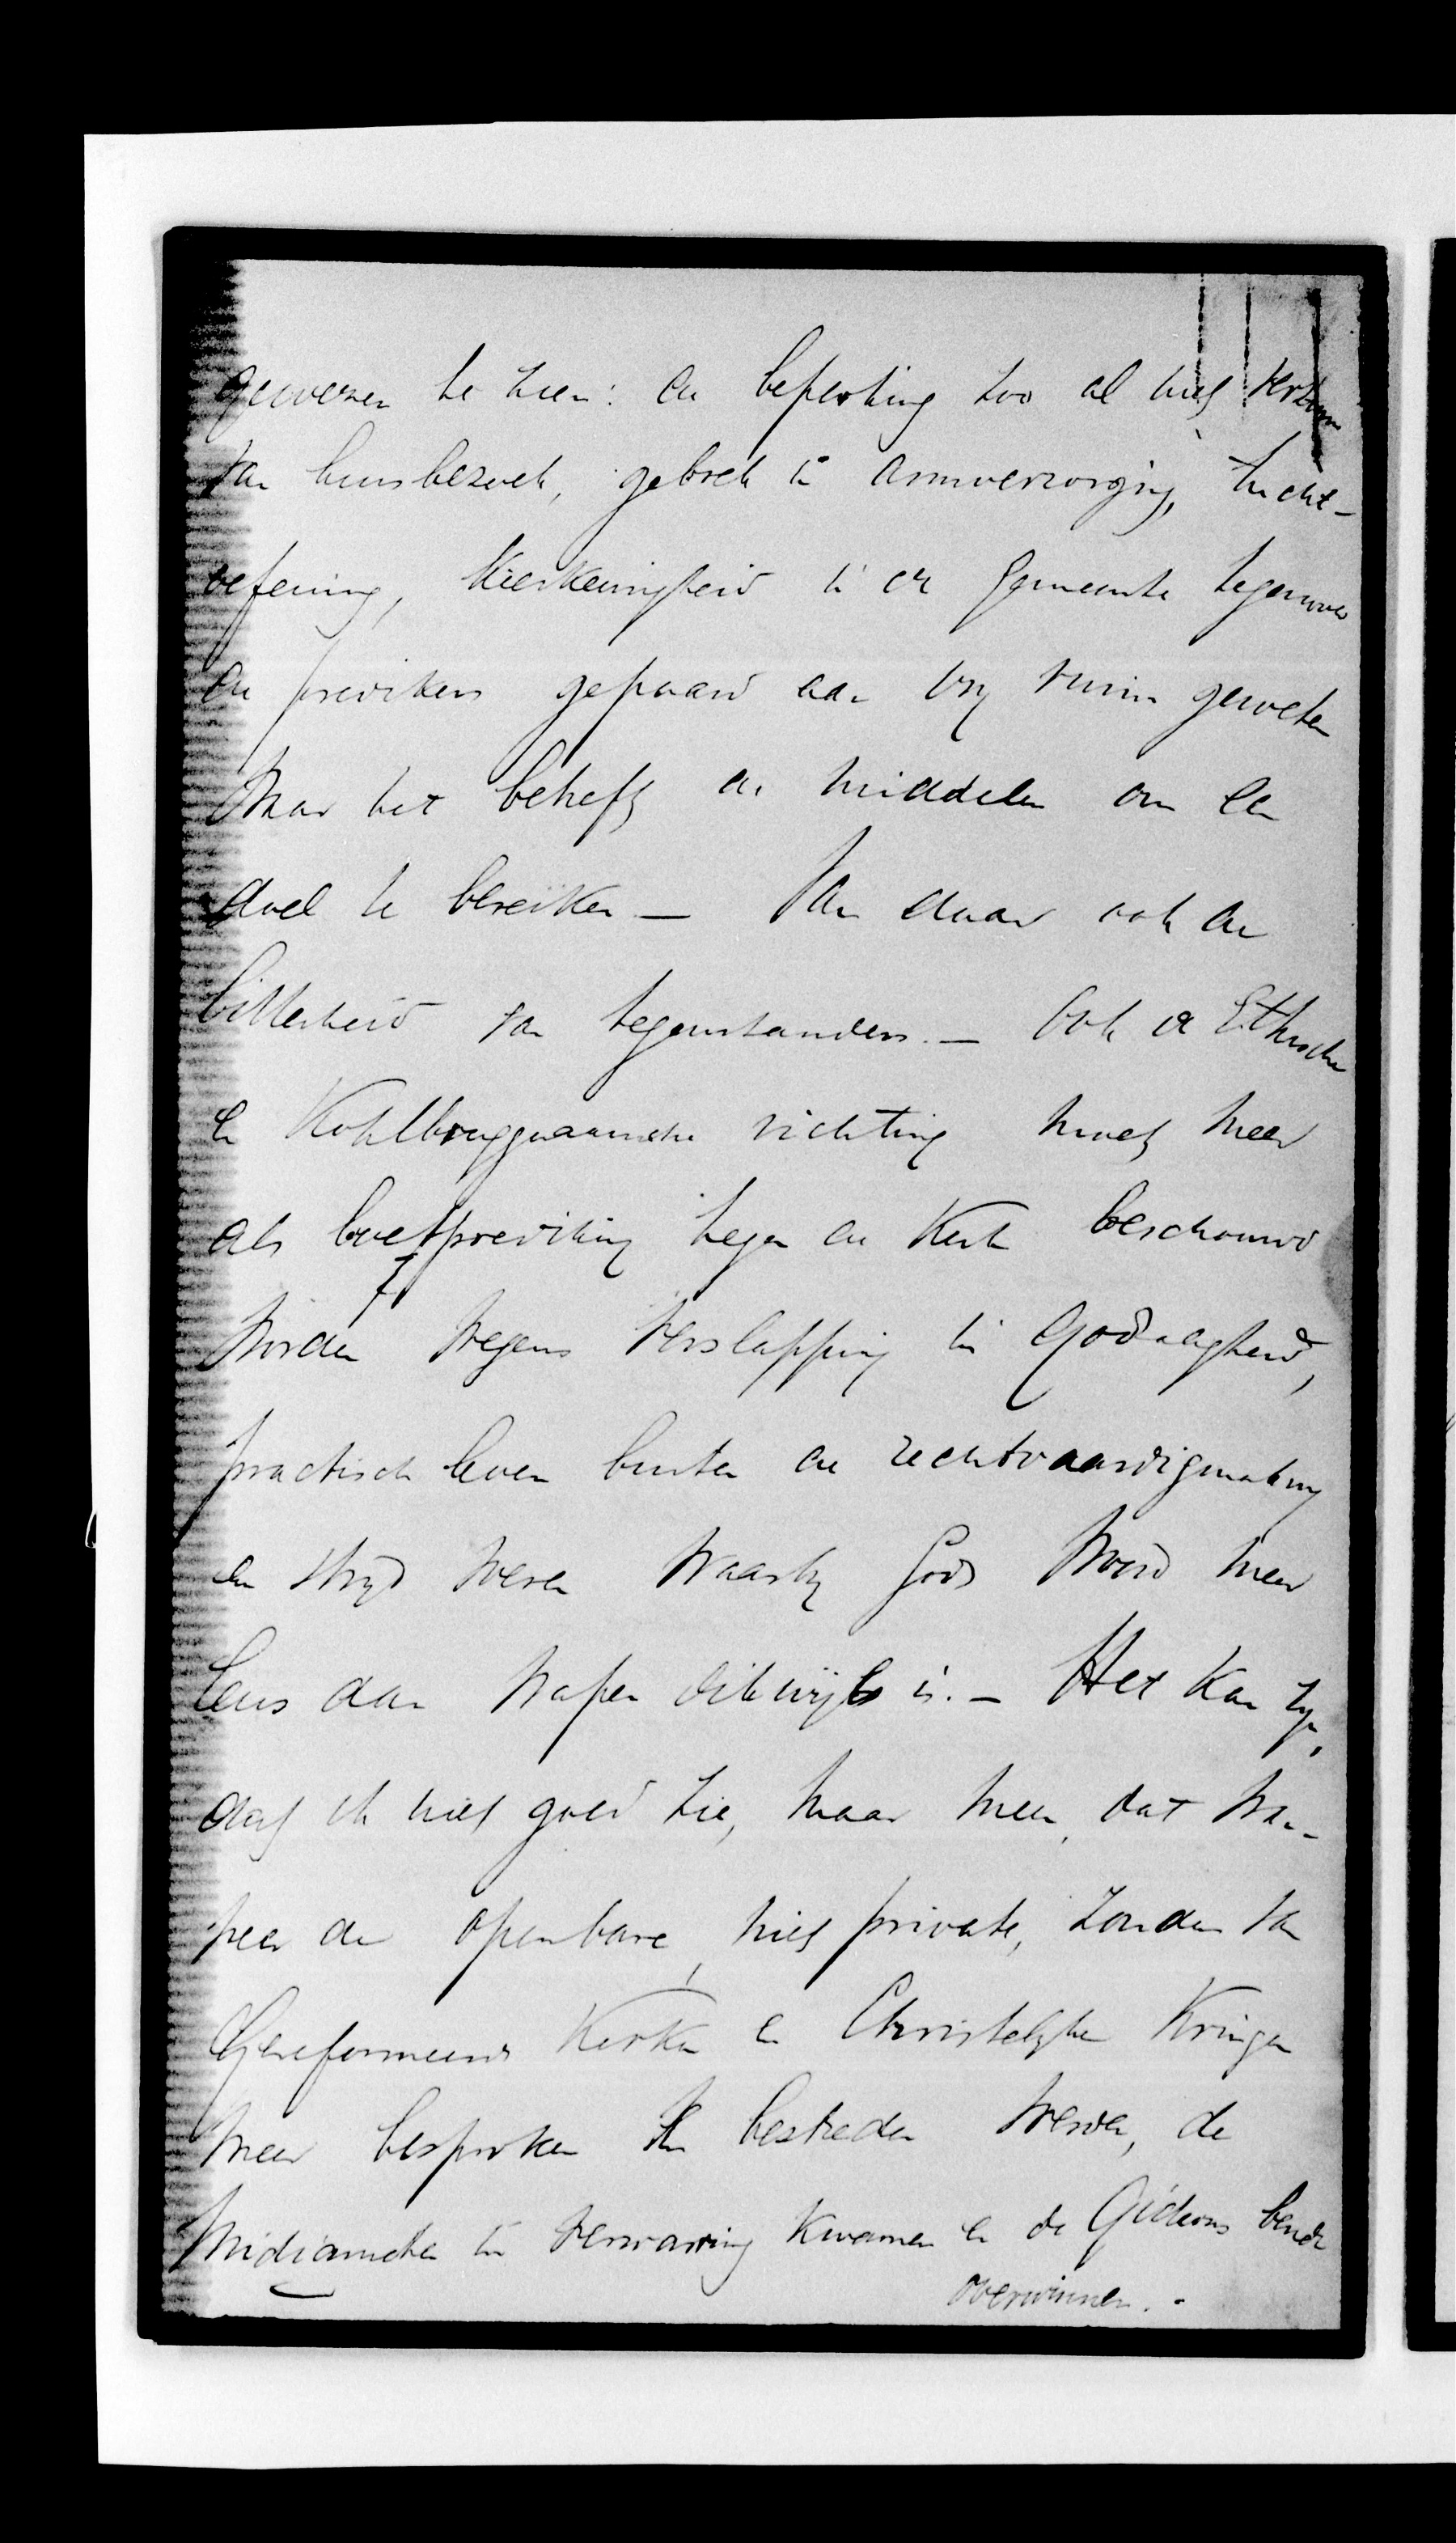 geweten te zien: de beperking zoo al niet verzuim
van huisbezoek, gebrek in armverzorging, tucht-
oefening, kieskeurigheid in de gemeente tegenover
de predikers gepaard aan vrij ruim geweten
waar het betreft de middelen om een
doel te bereiken — Van daar ook de
bitterheid van tegenstanders. — Ook de Ethische
en Kohlbruggiaansche richting moet meer
als boetprediking tegen de Kerk beschouwd
worden wegens verslapping in Godzaligheid,
practisch leven buiten de rechtvaardigmaking
en strijd waarbij Gods Woord meer
leus dan wapen dikwijls is. — Het kan zijn,
dat ik niet goed zie, maar meen, dat wan-
neer de openbare, niet private, zonden van
Gereformeerde Kerken en Christelijke Kringen
meer besproken en bestreden werden, de
Midianieten in verwarring kwamen en de Gideons bende
overwinnen. -